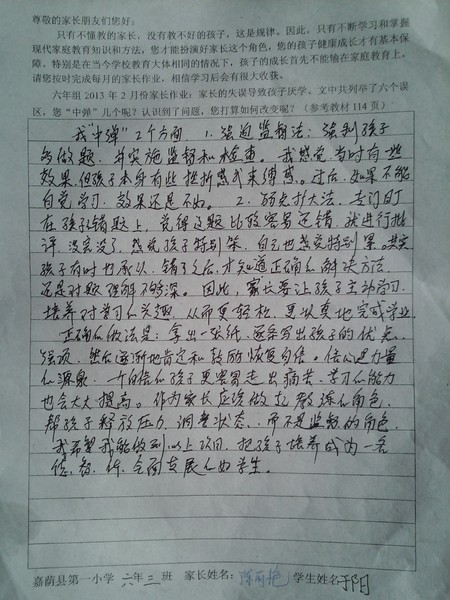 尊敬的家长朋友们您好：
只有不懂教的家长，没有教不好的孩子，这是规律。因此，只有不断学习和掌握
现代家庭教育知识和方法，您才能扮演好家长这个角色，您的孩子健康成长才有基本保
障。特别是在当今学校教育大体相同的情况下，孩子的成长首先不能输在家庭教育上。
请您按时完成每月的家长作业，相信学习后会有很大收获。
六年组 2013 年 2 月份家长作业：家长的失误导致孩子厌学。文中共列举了六个误
区，您“中弹”几个呢？认识到了问题，您打算如何改变呢？（参考教材 114 页）
我“中弹”2个方面 1. 强迫监督法：强制孩子
多做题，并实施监督和检查。我感觉，当时有些
效果，但孩子本身有些挫折感或束缚感。过后，如果不能
自觉学习，效果还是不好。2. 弱点扩大法，专门盯
在孩子错题上，觉得这题比较容易还错，就进行批
评，没完没了，感觉孩子特别笨，自己也感觉特别累。其实
孩子有时也承认，错了之后，才知道正确的解决方法，
还是对题理解不够深。因此，家长要让孩子主动学习，
培养对学习的兴趣，从而更轻松，更认真地完成学业。
正确的做法是：拿出一张纸，逐条写出孩子的优点、
强项，然后逐渐地肯定和鼓励恢复自信。信心是力量
的源泉，一个自信的孩子更容易走出痛苦，学习的能力
也会大大提高。作为家长应该做起教练的角色，
帮孩子释放压力，调整状态，而不是监督的角色。
我希望我能做到以上几项，把孩子培养成为一名
德、智、体、全面发展的好学生。
嘉荫县第一小学 六年二班 家长姓名：陈丽艳 学生姓名于阳